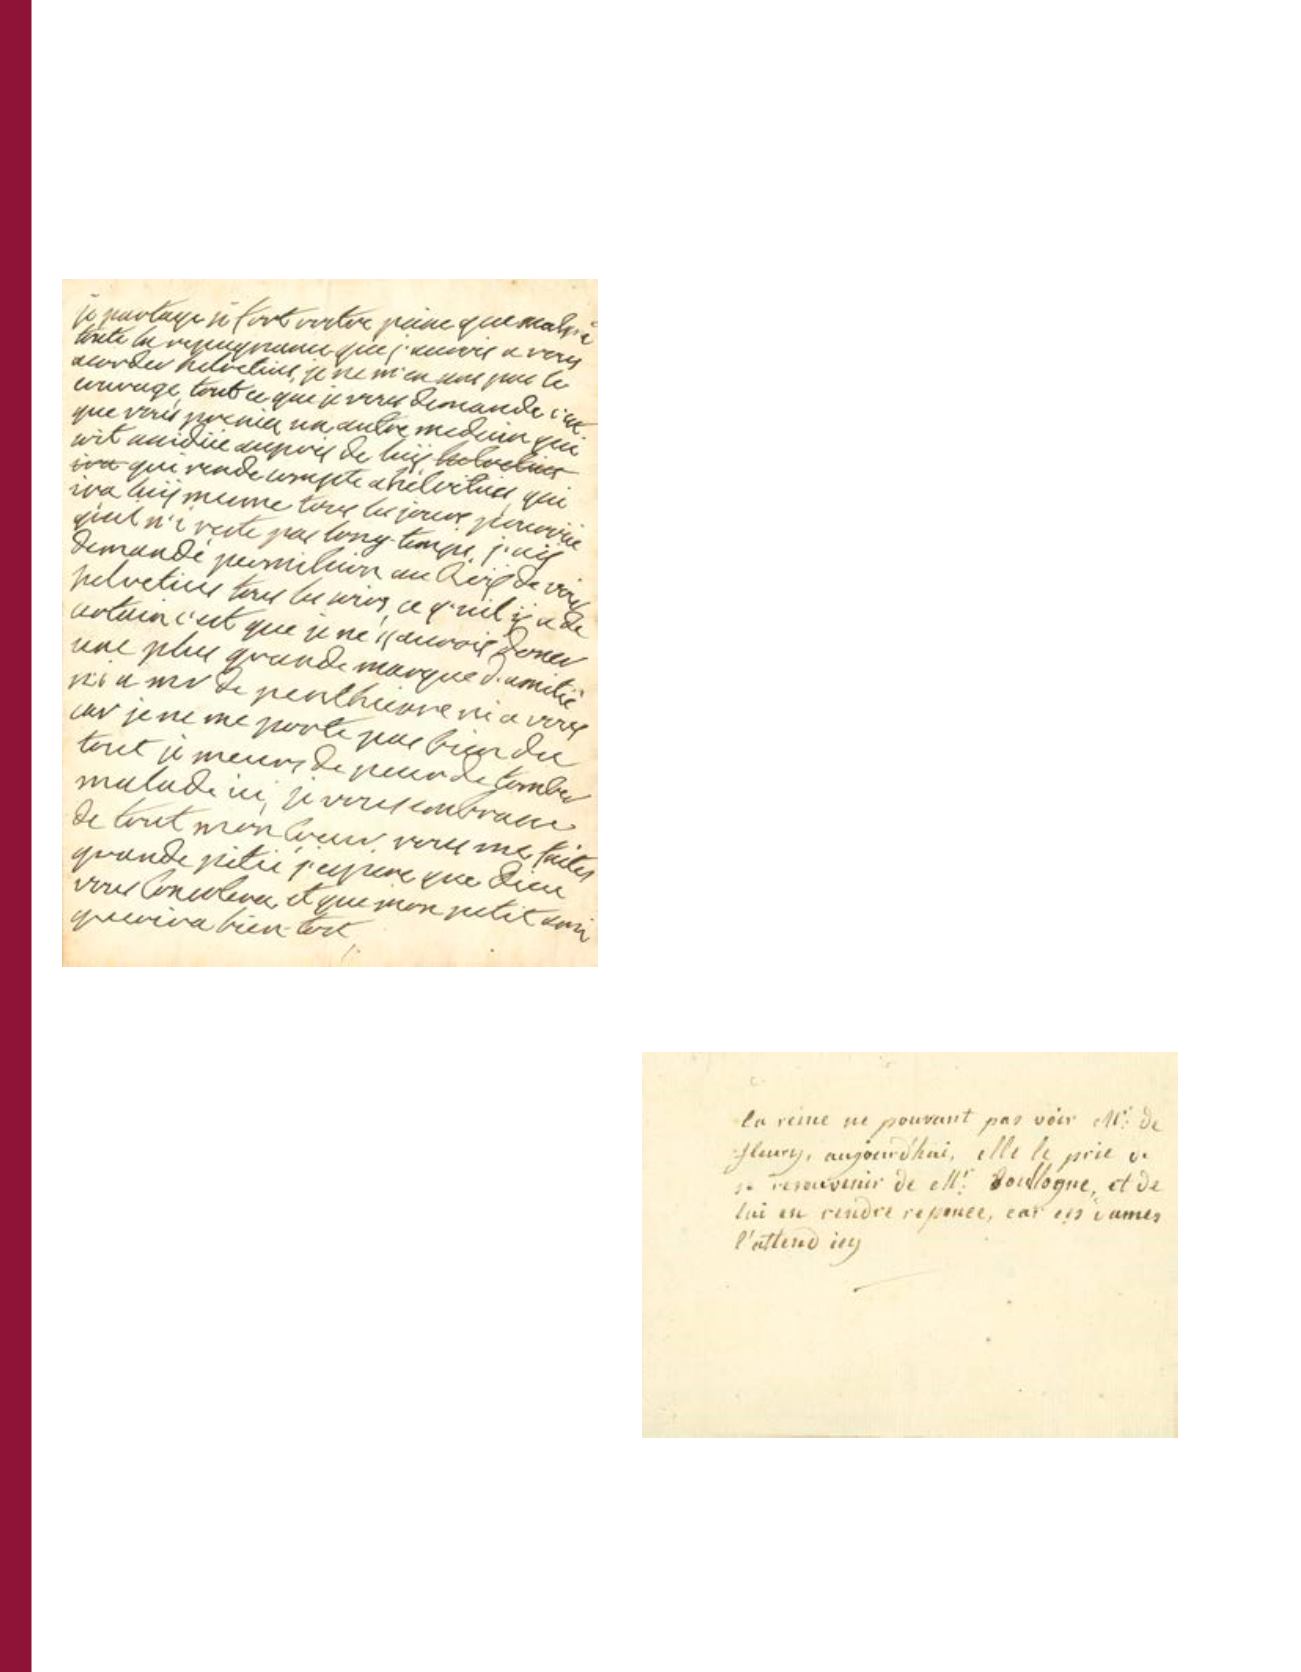 je partage si fort vostre peine que malgré
toute la repugnance que j'auois a vous
acorder helvetius, je ne m'en sens pas le
courage, tout ce que je vous demande c'est
que vous preniez un autre medecin qui
soit assidüe aupres de luÿ helvetius
ira qui rende compte a helvetius, qui
ira luÿ mesme tous les jours pourvüe
quil n'i reste pas long-temps, j'aÿ
demandé permission au Roÿ de voir
helvetius tous les soirs, ce qu'il ÿ a de
certain c'est que je ne sçaurois doner
une plus grande marque d'amitié
ni a mr de penthievre ni a vous
car je ne me porte pas bien du
tout je meurs de peur de tomber
malade ici, je vous embrasse
de tout mon Coeur, vous me faites
grande pitié j'espere que Dieu
vous Consolera, et que mon petit ami
guerira bien-tost
la reine ne pouvant pas voir Mr: de
fleury, aujourd'hui, elle le prie de
se resouvenir de Mr: Boullogne, et de
lui en rendre reponce, car ces dames
l'attend icy